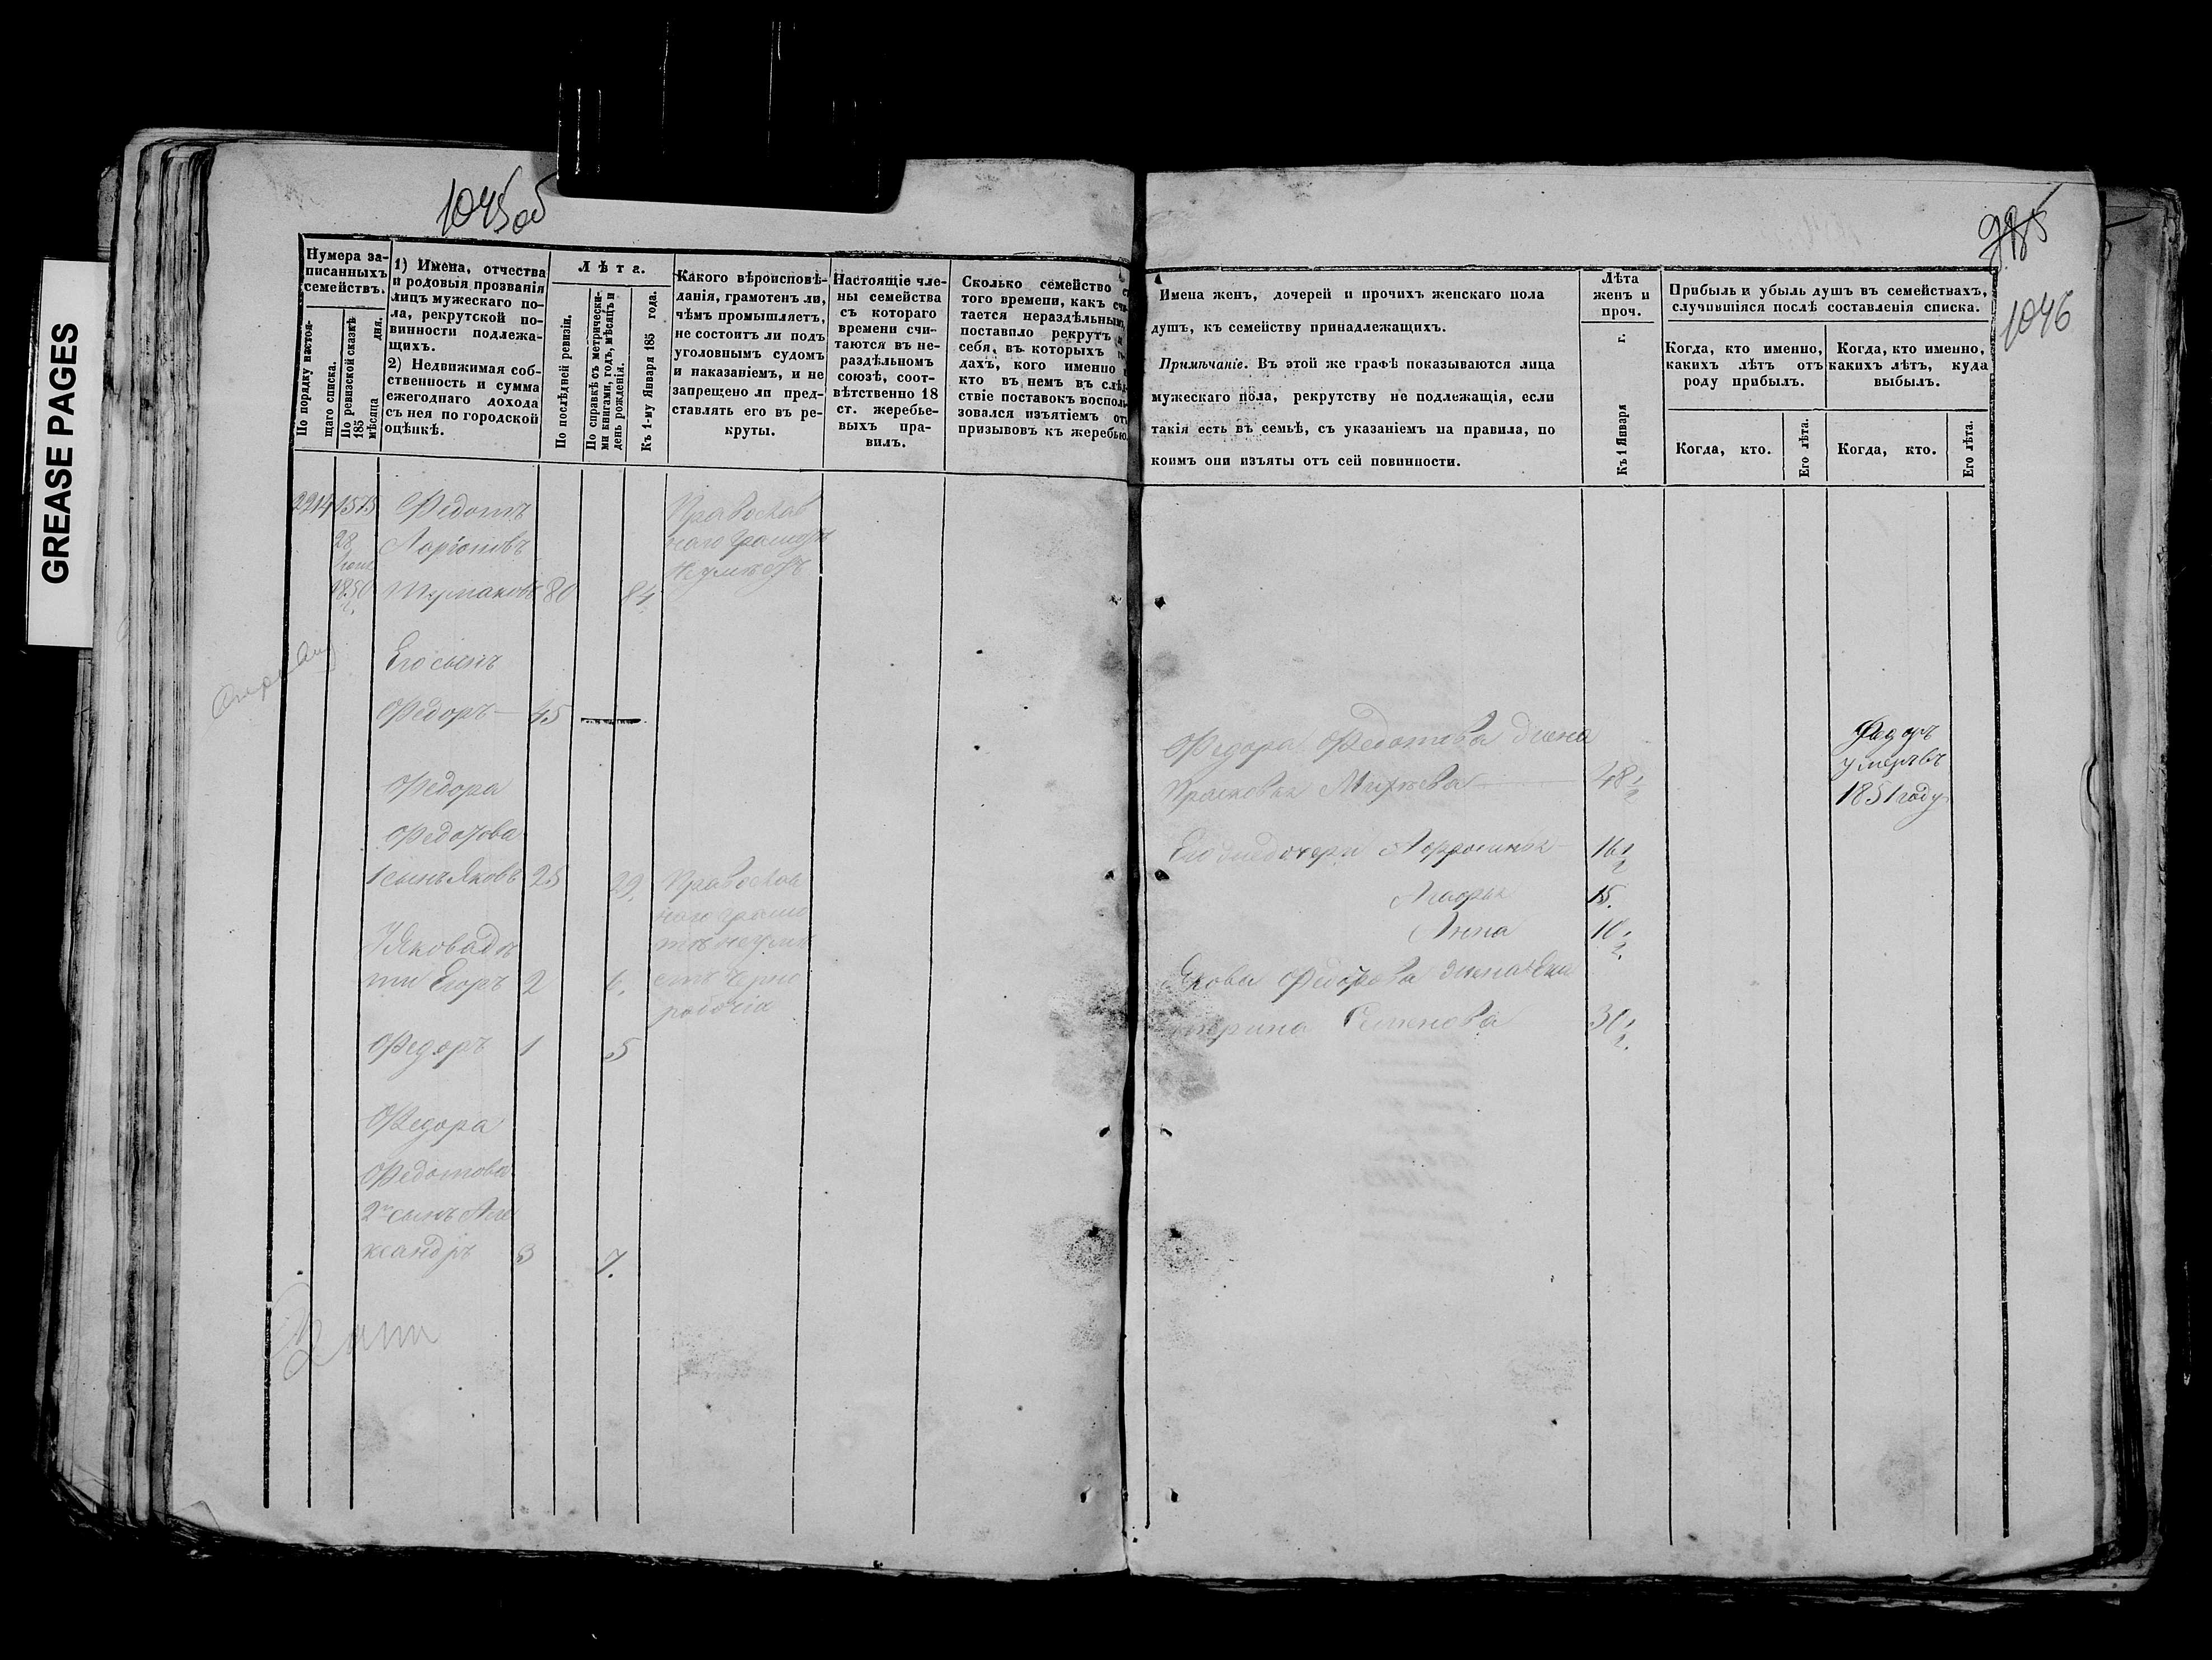 GREASE PAGES
1045об
Нумера за-
писанныхъ
семействъ.
По порядку настоя-
щаго списка.
По ревизской сказкѣ
185 дня.
мѣсяца
1) Имена, отчества
и родовыя прозванія
лицъ мужескаго по-
ла, рекрутской по-
винности подлежа-
щихъ.
2) Недвижимая соб-
ственность и сумма
ежегоднаго дохода
съ нея по городской
оцѣнкѣ.
Лѣта.
По послѣдней ревизіи.
По справкѣ съ метрически-
ми книгами, годъ, мѣсяцъ и
день рожденія.
Къ 1-му Января 185 года.
Какого вѣроисповѣ-
данія, грамотенъ ли,
чѣмъ промышляетъ,
не состоитъ ли подъ
уголовнымъ судомъ
и наказаніемъ, и не
запрещено ли пред-
ставлять его въ ре-
круты.
Настоящіе чле-
ны семейства
съ котораго
времени счи-
таются въ не-
раздѣльномъ
союзѣ, соот-
вѣтственно 18
ст. жеребье-
выхъ пра-
вилъ.
Сколько семейство
того времени, какъ счи-
тается нераздѣльнымъ,
поставило рекрутъ
себя, въ которыхъ го-
дахъ, кого именно
кто въ немъ въ слѣд-
ствіе поставокъ восполь-
зовался изъятіемъ отъ
призывовъ къ жеребью.
2214 1575 Федотъ
28 Ларіоновъ
1850
80 84
Православ
наго грамотѣ
неумѣетъ
Его сынъ
Федоръ 45
Федора
Федотова
1 сынъ Яковъ 25 29.
Православ
наго грамо
тѣ неумѣ
етъ черно
рабочія
У Якова дѣ
ти Егоръ 2 6.
Федоръ 1 5
Федора
Федотова
2й сынъ Але
ксандръ 3 7.
985
1046
Имена женъ, дочерей и прочихъ женскаго пола
душъ, къ семейству принадлежащихъ.
Примѣчаніе. Въ этой же графѣ показываются лица
мужескаго пола, рекрутству не подлежащія, если
такія есть въ семьѣ, съ указаніемъ на правила, по
коимъ они изъяты отъ сей повинности.
Лѣта
женъ и
проч.
Къ 1 Января г.
Прибыль и убыль душъ въ семействахъ,
случившіяся послѣ составленія списка.
Когда, кто именно,
какихъ лѣтъ отъ
роду прибылъ.
Когда, кто именно,
какихъ лѣтъ, куда
выбылъ.
Когда, кто.
Его лѣта.
Когда, кто.
Его лѣта.
Федора Федотова жена
Прасковья Михѣева 48½
Федоръ
умеръ въ
1851 году
Его дочери 16½
15.
Анна 10½.
Якова Федорова жена Ека
терина Семенова 30½.